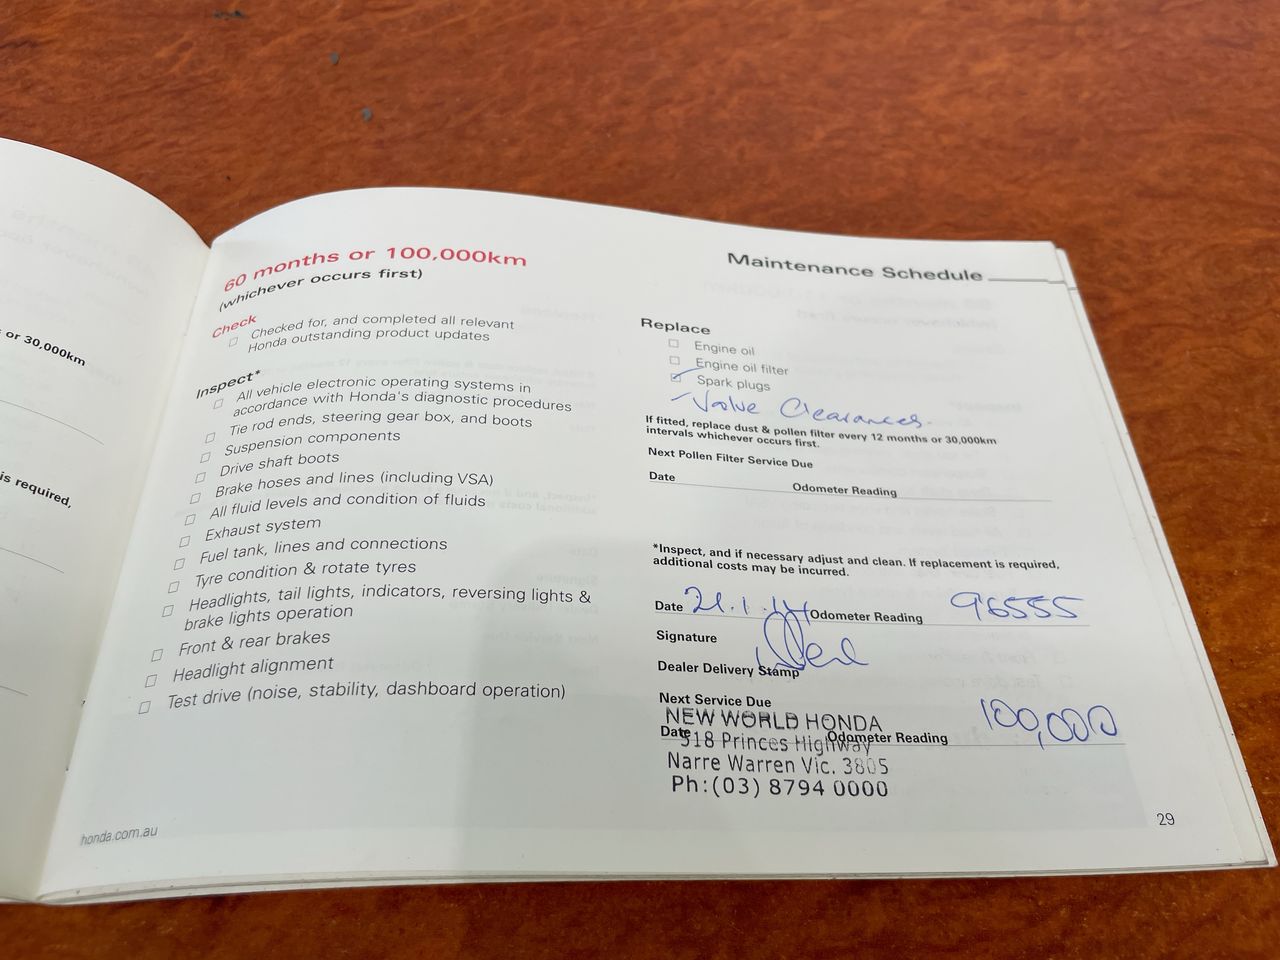 or 30,000km
is required,
60 months or 100,000km
(whichever occurs first)
Check
Checked for, and completed all relevant
Honda outstanding product updates
Inspect*
All vehicle electronic operating systems in
accordance with Honda's diagnostic procedures
Tie rod ends, steering gear box, and boots
Suspension components
Drive shaft boots
Brake hoses and lines (including VSA)
All fluid levels and condition of fluids
Exhaust system
Fuel tank, lines and connections
Tyre condition & rotate tyres
Headlights, tail lights, indicators, reversing lights &
brake lights operation
Front & rear brakes
Headlight alignment
Test drive (noise, stability, dashboard operation)
honda.com.au
Maintenance Schedule
Replace
Engine oil
Engine oil filter
Spark plugs
Valve Clearances.
If fitted, replace dust & pollen filter every 12 months or 30,000km
intervals whichever occurs first.
Next Pollen Filter Service Due
Date Odometer Reading
*Inspect, and if necessary adjust and clean. If replacement is required,
additional costs may be incurred.
Date 21.1.14 Odometer Reading 96555
Signature
Dealer Delivery Stamp
Next Service Due
NEW WORLD HONDA
Date Odometer Reading 100,000
518 Princes Highway
Narre Warren Vic. 3805
Ph:(03) 8794 0000
29